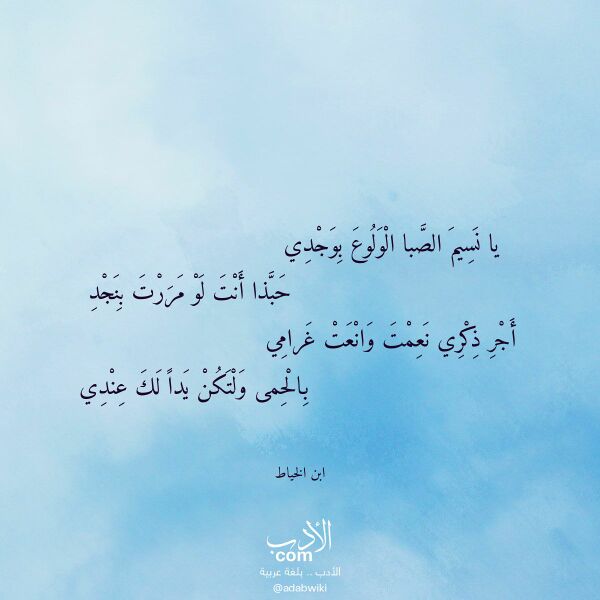 يا نَسِيمَ الصَّبا الْوَلُوعَ بِوَجْدِي
حَبَّذا أَنْتَ لَوْ مَرَرْتَ بِنَجْدِ
أَجْرِ ذِكْرِي نَعِمْتَ وَانْعَتْ غَرامِي
بِالْحِمى وَلْتَكُنْ يَداً لَكَ عِنْدِي
ابن الخياط
الأدب
com
الأدب .. بلغة عربية
@adabwiki